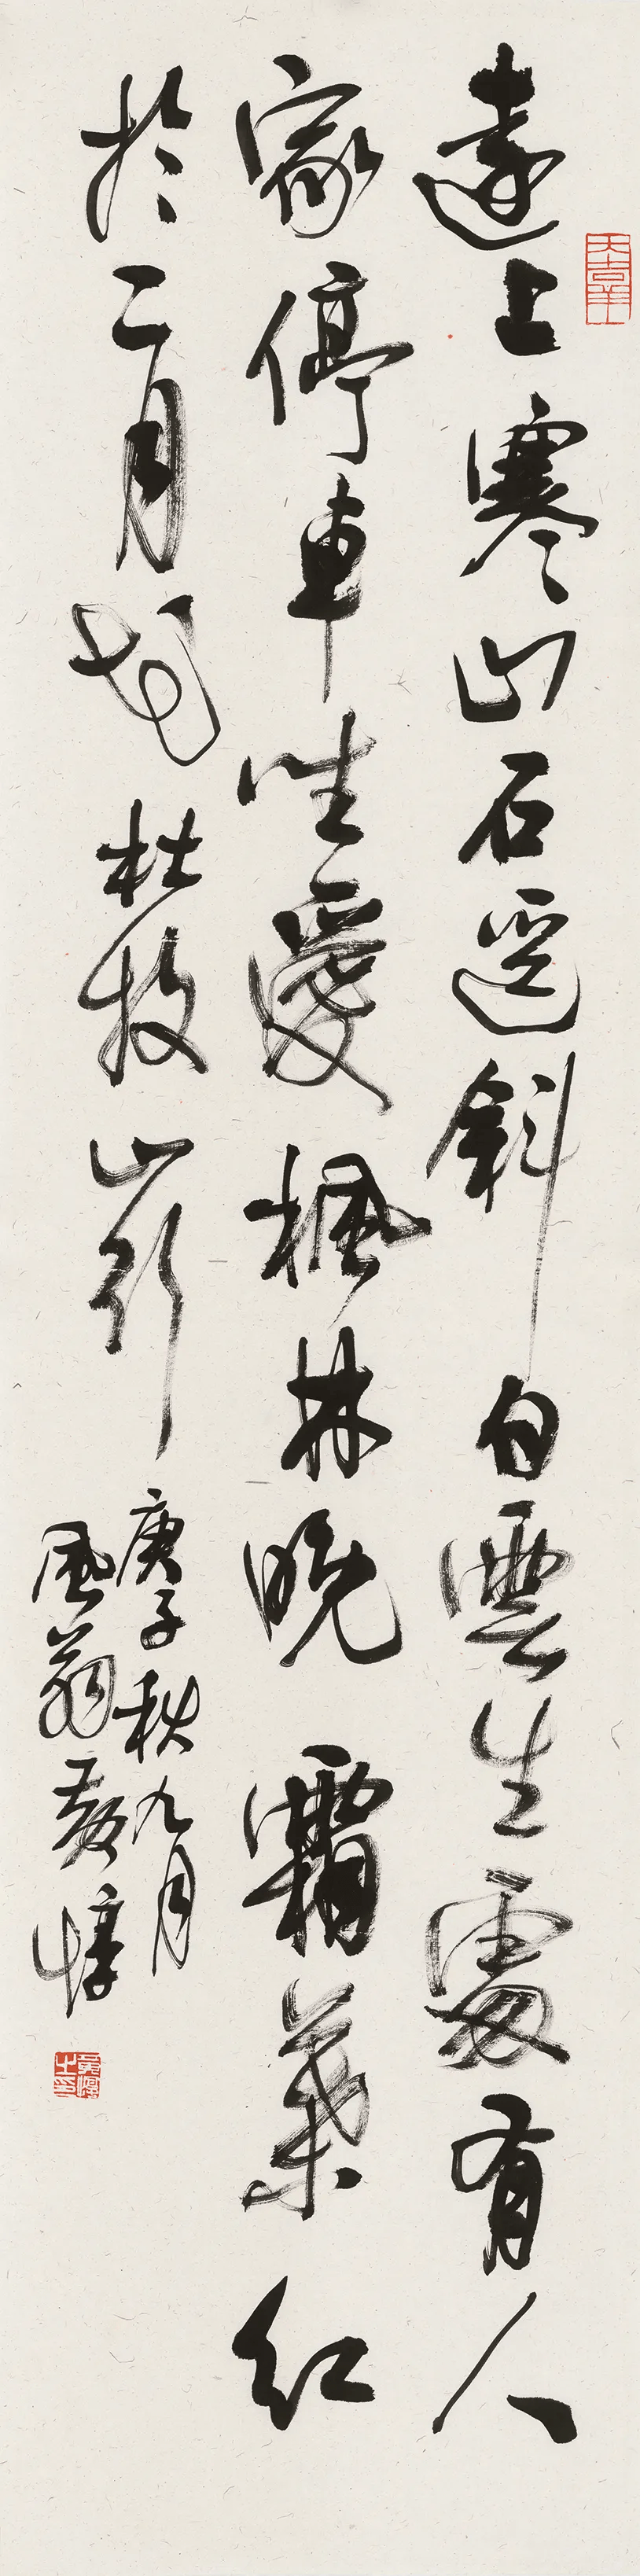 遠上寒山石逕斜白雲生處有人
家停車坐愛楓林晚霜葉紅
於二月花杜牧山行
庚子秋九月
風翁黃惇
黃惇之印